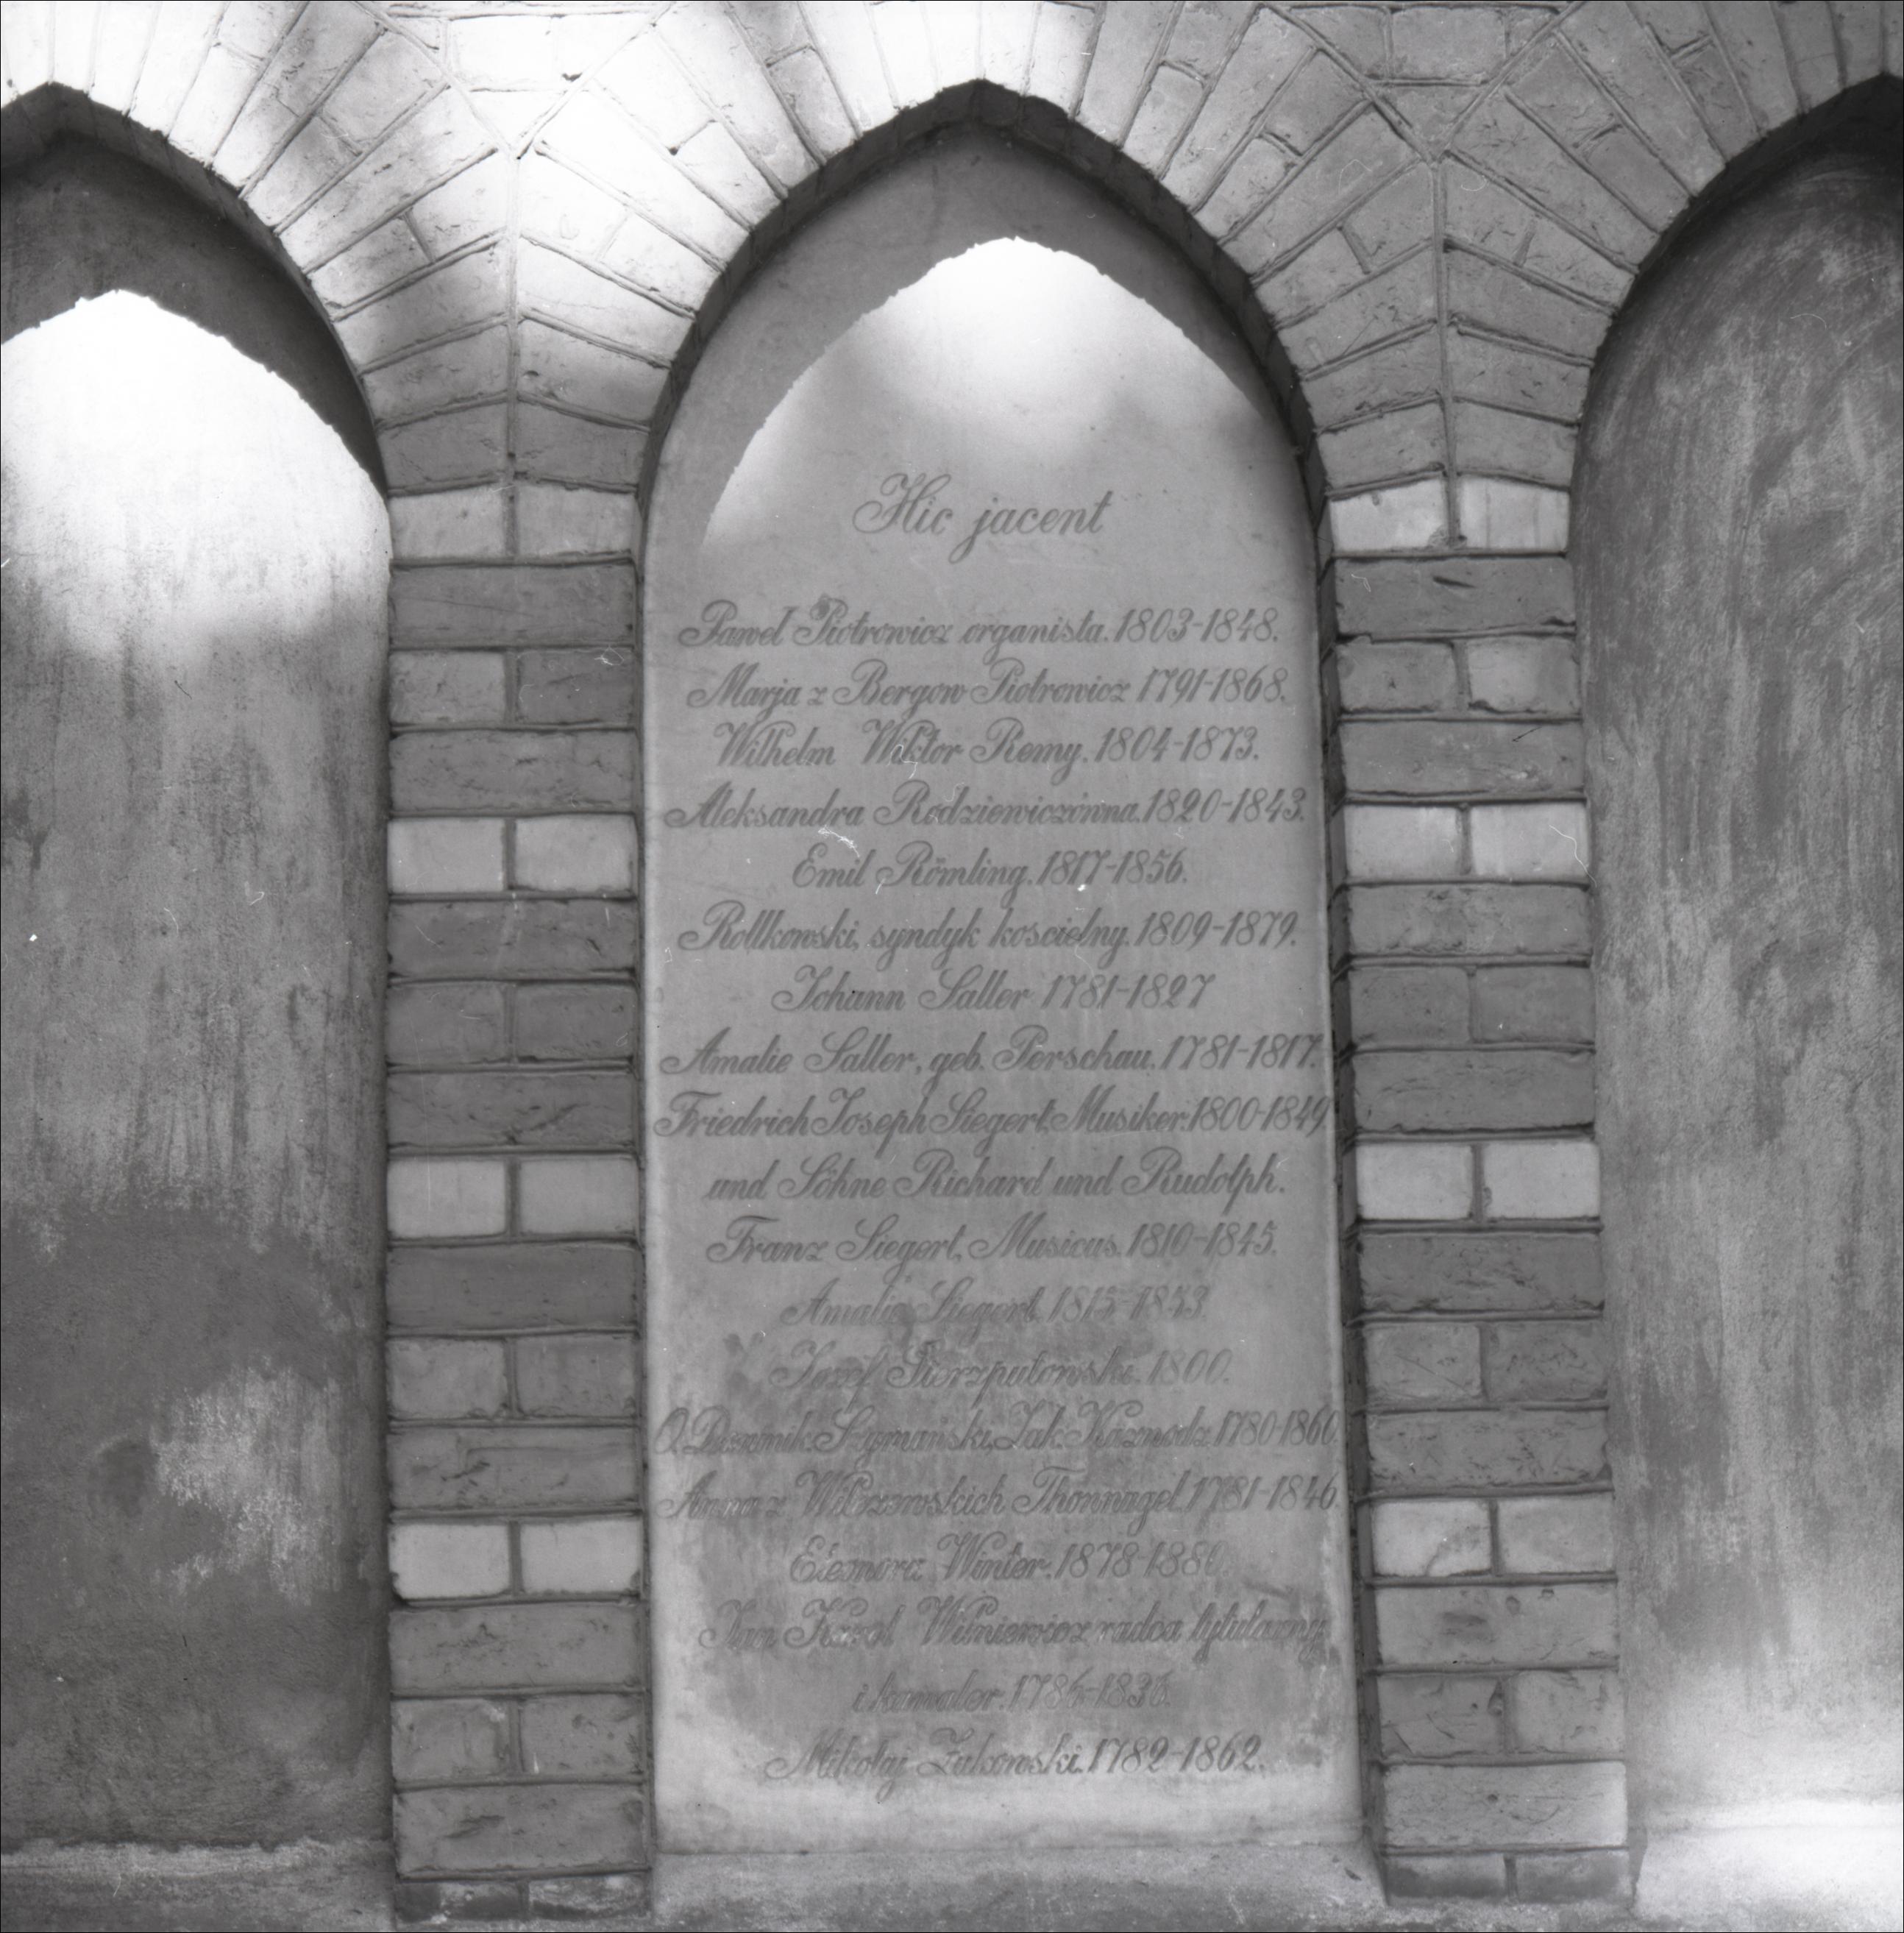 Hic jacent
Paweł Piotrowicz organista. 1803-1848.
Marja z Bergow Piotrowicz 1791-1868.
Wilhelm Wiktor Remy. 1804-1873.
Aleksandra Rodziewiczónna. 1820-1843.
Emil Römling. 1817-1856.
Rollkowski, syndyk koscielny. 1809-1879.
Johann Saller 1781-1827
Amalie Saller, geb. Perschau. 1781-1817.
Friedrich Joseph Siegert. Musiker. 1800-1849
und Söhne Richard und Rudolph.
Franz Siegert, Musicus. 1810-1845.
Amalie Siegert.
Józef Sierzputowski. 1800.
O. Dominik Szymański, Zak. Kaznodz 1780-1860.
Anna z Wilczewskich Thonnagel. 1781-1846.
Eleonora Winter. 1878-1880.
Jan Karol Wilniewicz radca tytularny
i kawaler.
Mikołaj Żukowski. 1782-1862.